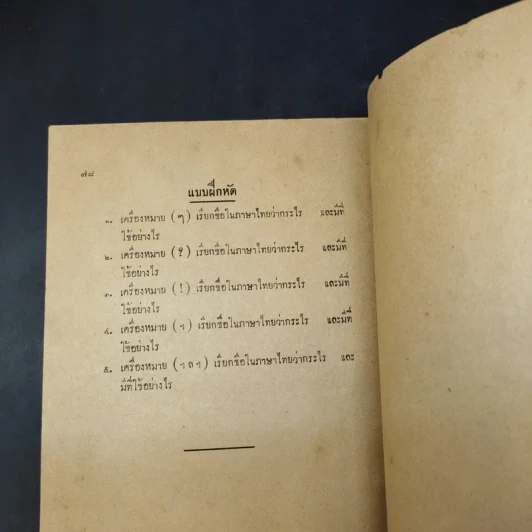 ๗๘
แบบฝึกหัด
๑. เครื่องหมาย (ๆ) เรียกชื่อในภาษาไทยว่ากระไร และมีที่
ใช้อย่างไร
๒. เครื่องหมาย (?) เรียกชื่อในภาษาไทยว่ากระไร และมีที่
ใช้อย่างไร
๓. เครื่องหมาย (!) เรียกชื่อในภาษาไทยว่ากระไร และมีที่
ใช้อย่างไร
๔. เครื่องหมาย (ฯ) เรียกชื่อในภาษาไทยว่ากระไร และมีที่
ใช้อย่างไร
๕. เครื่องหมาย (ฯลฯ) เรียกชื่อในภาษาไทยว่ากระไร และ
มีที่ใช้อย่างไร